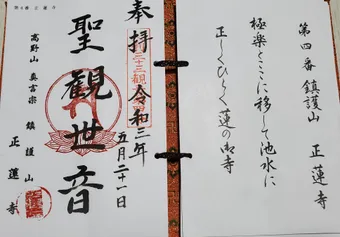 第四番 鎮護山 正蓮寺
極楽をここに移して池水に
正しくひらく蓮の御寺
奉拝 令和三年
五月二十一日
聖観世音
高野山 真言宗 鎮護山
正蓮寺